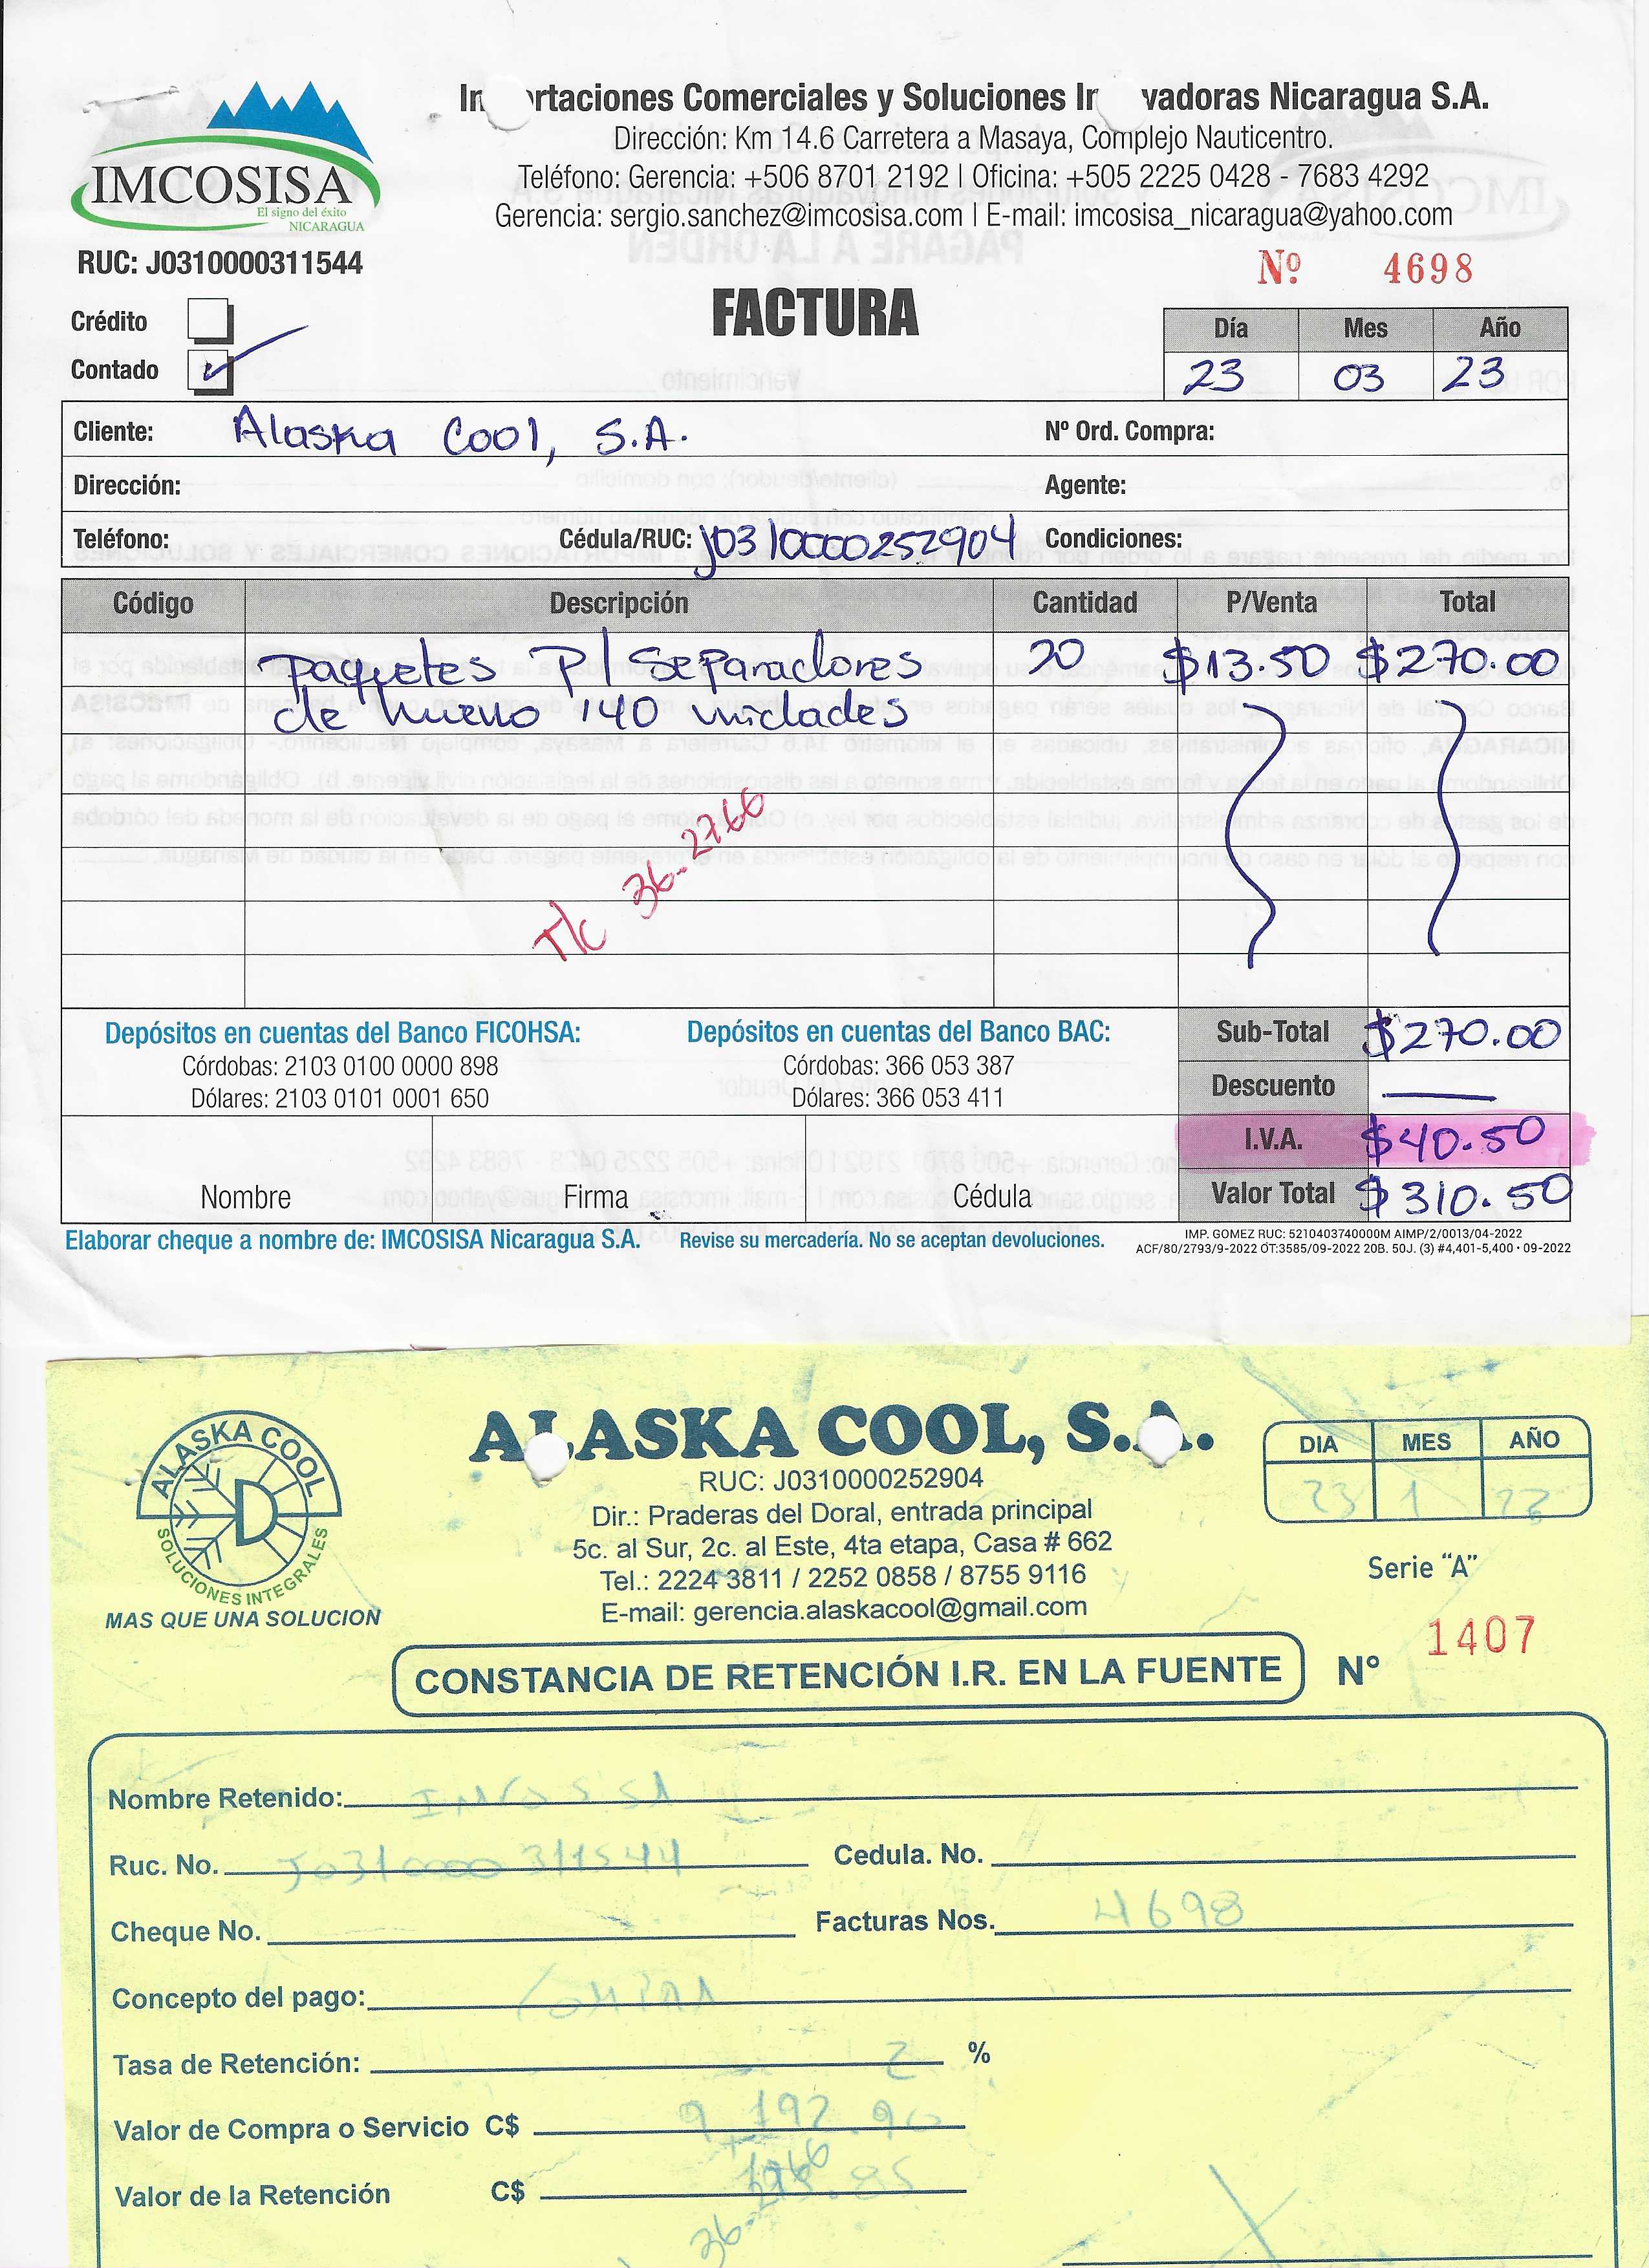 IMCOSISA
El signo del éxito
NICARAGUA
RUC: J0310000311544
rtaciones Comerciales y Soluciones In vadoras Nicaragua S.A.
Dirección: Km 14.6 Carretera a Masaya, Complejo Nauticentro.
Teléfono: Gerencia: +506 8701 2192 | Oficina: +505 2225 0428 - 7683 4292
Gerencia: sergio.sanchez@imcosisa.com | E-mail: imcosisa_nicaragua@yahoo.com
Nº 4698
FACTURA
Crédito
Contado
Día Mes Año
23 03 23
Cliente: Alaska Cool, S.A. Nº Ord. Compra:
Dirección: Agente:
Teléfono: Cédula/RUC: J0310000252904 Condiciones:
Código Descripción Cantidad P/Venta Total
Paquetes P/ Separadores 20 $13.50 $270.00
de huevo 140 unidades
T/c 36.2766
Depósitos en cuentas del Banco FICOHSA: Depósitos en cuentas del Banco BAC: Sub-Total $270.00
Córdobas: 2103 0100 0000 898 Córdobas: 366 053 387
Dólares: 2103 0101 0001 650 Dólares: 366 053 411 Descuento —
I.V.A. $40.50
Nombre Firma Cédula Valor Total $310.50
Elaborar cheque a nombre de: IMCOSISA Nicaragua S.A. Revise su mercadería. No se aceptan devoluciones.
IMP. GOMEZ RUC: 5210403740000M AIMP/2/0013/04-2022
ACF/80/2793/9-2022 OT:3585/09-2022 20B. 50J. (3) #4,401-5,400 • 09-2022
ALASKA COOL
SOLUCIONES INTEGRALES
MAS QUE UNA SOLUCION
ALASKA COOL, S.A.
RUC: J0310000252904
Dir.: Praderas del Doral, entrada principal
5c. al Sur, 2c. al Este, 4ta etapa, Casa # 662
Tel.: 2224 3811 / 2252 0858 / 8755 9116
E-mail: gerencia.alaskacool@gmail.com
DIA MES AÑO
23
Serie “A”
CONSTANCIA DE RETENCIÓN I.R. EN LA FUENTE N° 1407
Nombre Retenido:
Ruc. No. J0310000311544 Cedula. No.
Cheque No. Facturas Nos. 4698
Concepto del pago: COMPRA
Tasa de Retención: 2 %
Valor de Compra o Servicio C$ 9,192.90
Valor de la Retención C$
36.